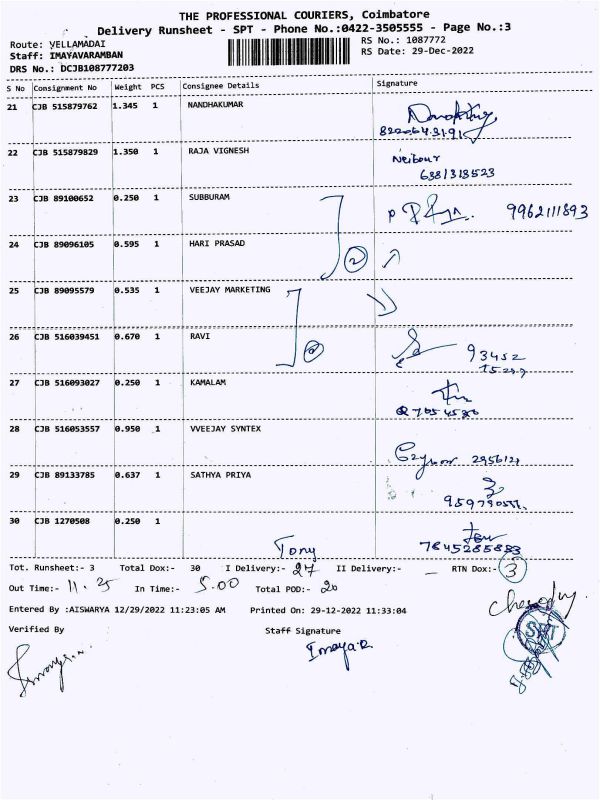 THE PROFESSIONAL COURIERS, Coimbatore
Delivery Runsheet - SPT - Phone No.:0422-3505555 - Page No.:3
Route: VELLAMADAI
RS No.: 1087772
Staff: IMAYAVARAMBAN
RS Date: 29-Dec-2022
DRS No.: DCJB108777203
S No Consignment No Weight PCS Consignee Details Signature
21 CJB 515879762 1.345 1 NANDHAKUMAR
22 CJB 515879829 1.350 1 RAJA VIGNESH
Neibour
6381313523
23 CJB 89100652 0.250 1 SUBBURAM 9962111893
24 CJB 89096105 0.595 1 HARI PRASAD
25 CJB 89095579 0.535 1 VEEJAY MARKETING
26 CJB 516039451 0.670 1 RAVI
93452
27 CJB 516093027 0.250 1 KAMALAM
28 CJB 516053557 0.950 1 VVEEJAY SYNTEX
29 CJB 89133785 0.637 1 SATHYA PRIYA
30 CJB 1270508 0.250 1
7845285883
Tony
Tot. Runsheet:- 3 Total Dox:- 30 I Delivery:- 27 II Delivery:- — RTN Dox:- 3
Out Time:- 11.25 In Time:- 5.00 Total POD:- 20
Entered By :AISWARYA 12/29/2022 11:23:05 AM Printed On: 29-12-2022 11:33:04
Verified By Staff Signature
Imaya.R
SPT